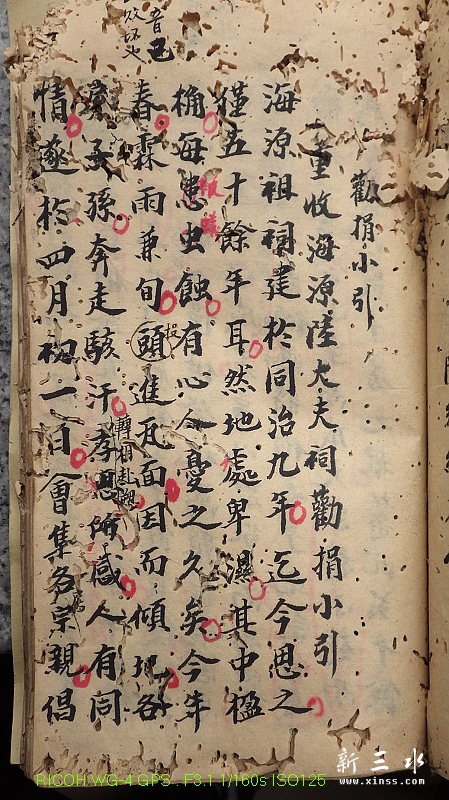 勸捐小引
一重收海源陸大夫祠勸捐小引
海源祖祠建於同治九年迄今思之
僅五十餘年耳然地處卑濕其中楹
桷每患虫蝕有心人憂之久矣今年
春霖雨兼旬頭進瓦面因而傾圮各
孫奔走駭汗孝思所感人有同
情遂於四月初一日會集各宗親倡
新三水
www.xinss.com
RICOH WG-4 GPS . F3.1 1/160s ISO125